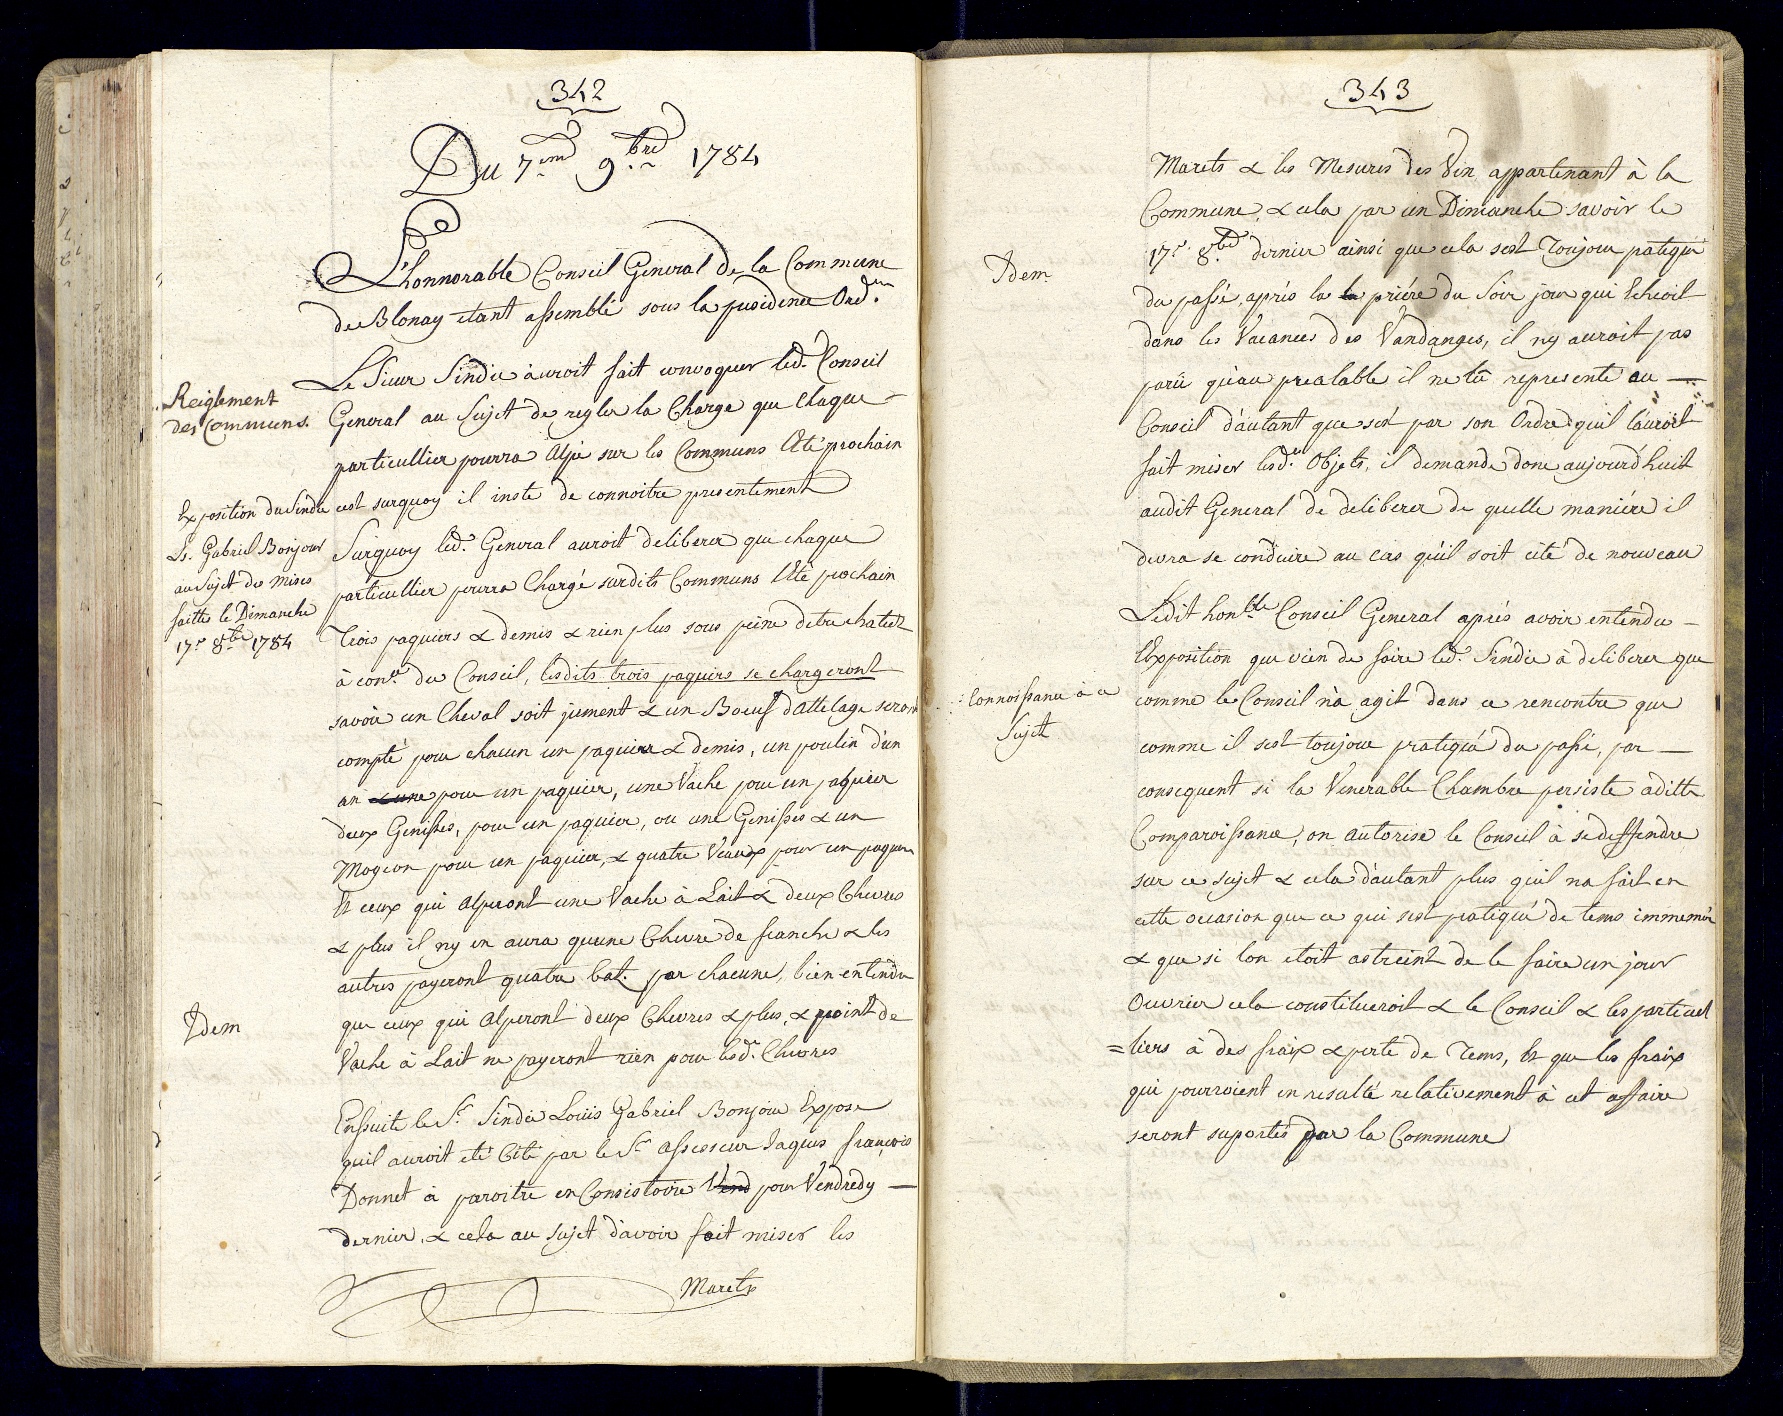 342
Du 7.me 9.bre 1784
L'honnorable Conseil General de la Commune
de Blonay étant assemblé sous la presidence Ord.re
Reiglement
des Communs.
Le Sieur Sindic auroit fait convoquer led. Conseil
General au Sujet de regler la Charge que Chaque
particullier pourra Alpé sur les Communs l'Eté prochain
cest surquoy il inste de connoitre presentement
Surquoy led. General auroit deliberer que chaque
particullier pourra Chargé surdits Communs l'Eté prochain
Trois paquiers & demis & rien plus sous peine detre chatiez
à con.ce du Conseil, lesdits trois paquiers se chargeront
savoir un Cheval soit jument & un Boeuf d'Attelage seront
compté pour chacun un paquier & demis, un poulin d'un
an & une pour un paquier, une Vache pour un paquier
deux Genisses, pour un paquier, ou une Genisses & un
Mogeon pour un paquier, & quatre Veaux pour un paquier
Et ceux qui Alperont une Vache à Lait & deux Chevres
& plus il ny en aura quune Chevre de franche & les
autres payeront quatre bat. par chacune, bien entendu
que ceux qui Alperont deux Chevres & plus, & point de
Vache à Lait ne payeront rien pour lesd. Chevres
Exposition du Sindic
Ls. Gabriel Bonjour
au Sujet des Mises
faitte le Dimanche
17.e 8.bre 1784
Idem
Ensuite le S.r Sindic Louis Gabriel Bonjour Expose
quil auroit eté Cité par le S.r Assesseur Jaques françois
Donnet à paroitre en Consistoire Vend pour Vendredy
dernier, & cela au sujet d'avoir fait miser les
Marets
343
Marets & les Mesures des Vin appartenant à la
Commune, & cela par un Dimanche savoir le
17.e 8.bre dernier ainsi que cela sest Toujour patiqué
Idem
du passé, aprés la la priére du Soir jour qui Echeoit
dans les Vacances des Vandanges, il ny auroit pas
parü qu'au prealable il ne lû represente au
Conseil d'autant que sest par son Ordre quil l'auroit
fait miser lesd. Objets, il demande donc aujourd'huit
audit General de deliberer de quelle maniére il
devra se conduire au cas qu'il soit cité de nouveau
Ledit hon.ble Conseil General aprés avoir entendu
l'Exposition que vien de faire led. Sindic à deliberer que
Connoissance à ce
Sujet
comme le Conseil n'a agit dans ce rencontre que
comme il sest toujour pratiqué du passé, par
consequent si la Venerable Chambre persiste aditte
Comparoissance, on autorise le Conseil à se deffendre
sur ce sujet & cela d'autant plus qu'il na fait en
cette occasion que ce qui sest pratiqué de tems immemor
& que si lon etoit astreint de le faire un jour
Ouvrier cela constitueroit & le Conseil & les particul
=liers à des fraix & perte de Tems, Et que les fraix
qui pourroient en resulté relativement à cet affaire
seront suportés par la Commune